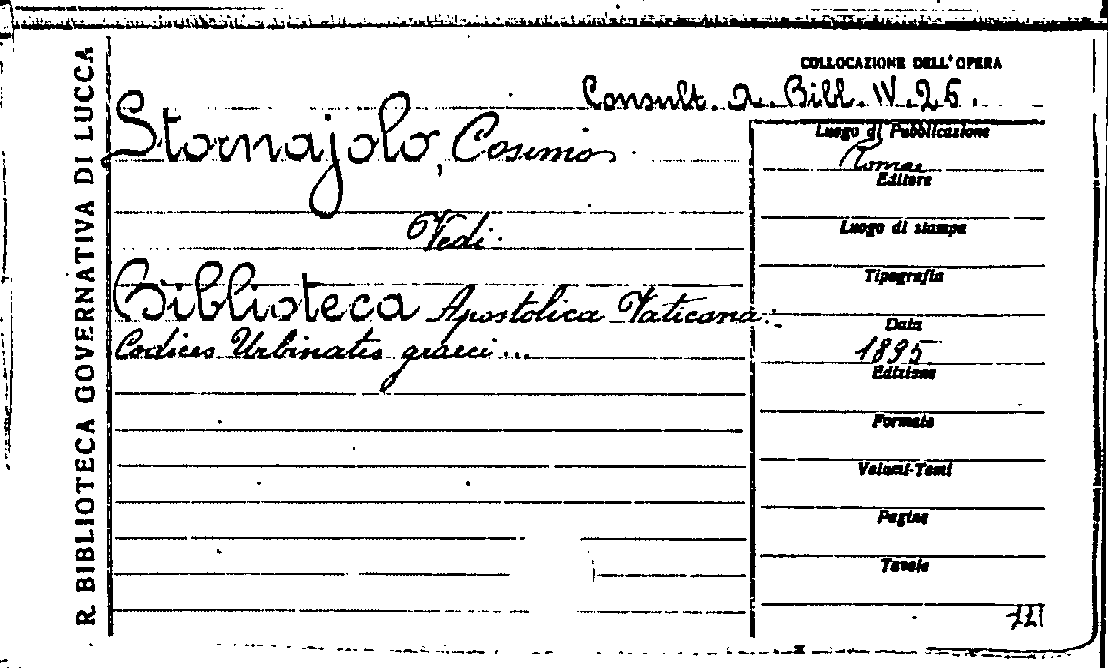 R. BIBLIOTECA GOVERNATIVA DI LUCCA
COLLOCAZIONE DELL'OPERA
Consult. a. Bibl. IV. 26.
Stornajolo, Cosimo
Vedi:
Biblioteca Apostolica Vaticana:
Codices Urbinatis graeci...
Luogo di Pubblicazione
Roma
Editore
Luogo di stampa
Tipografia
Data
1895
Edizione
Formato
Volumi-Tomi
Pagine
Tavole